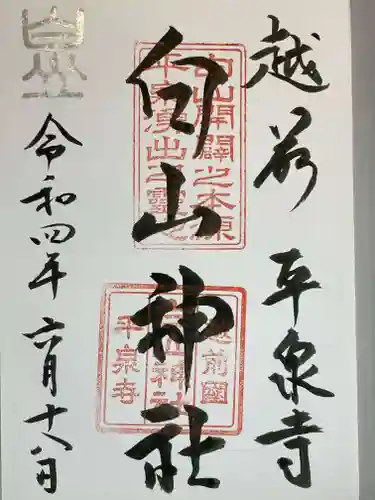 越前 平泉寺
白山神社
令和四年六月十八日
白山開闢之本源
平泉湧出之靈
越前國
白山神社
平泉寺